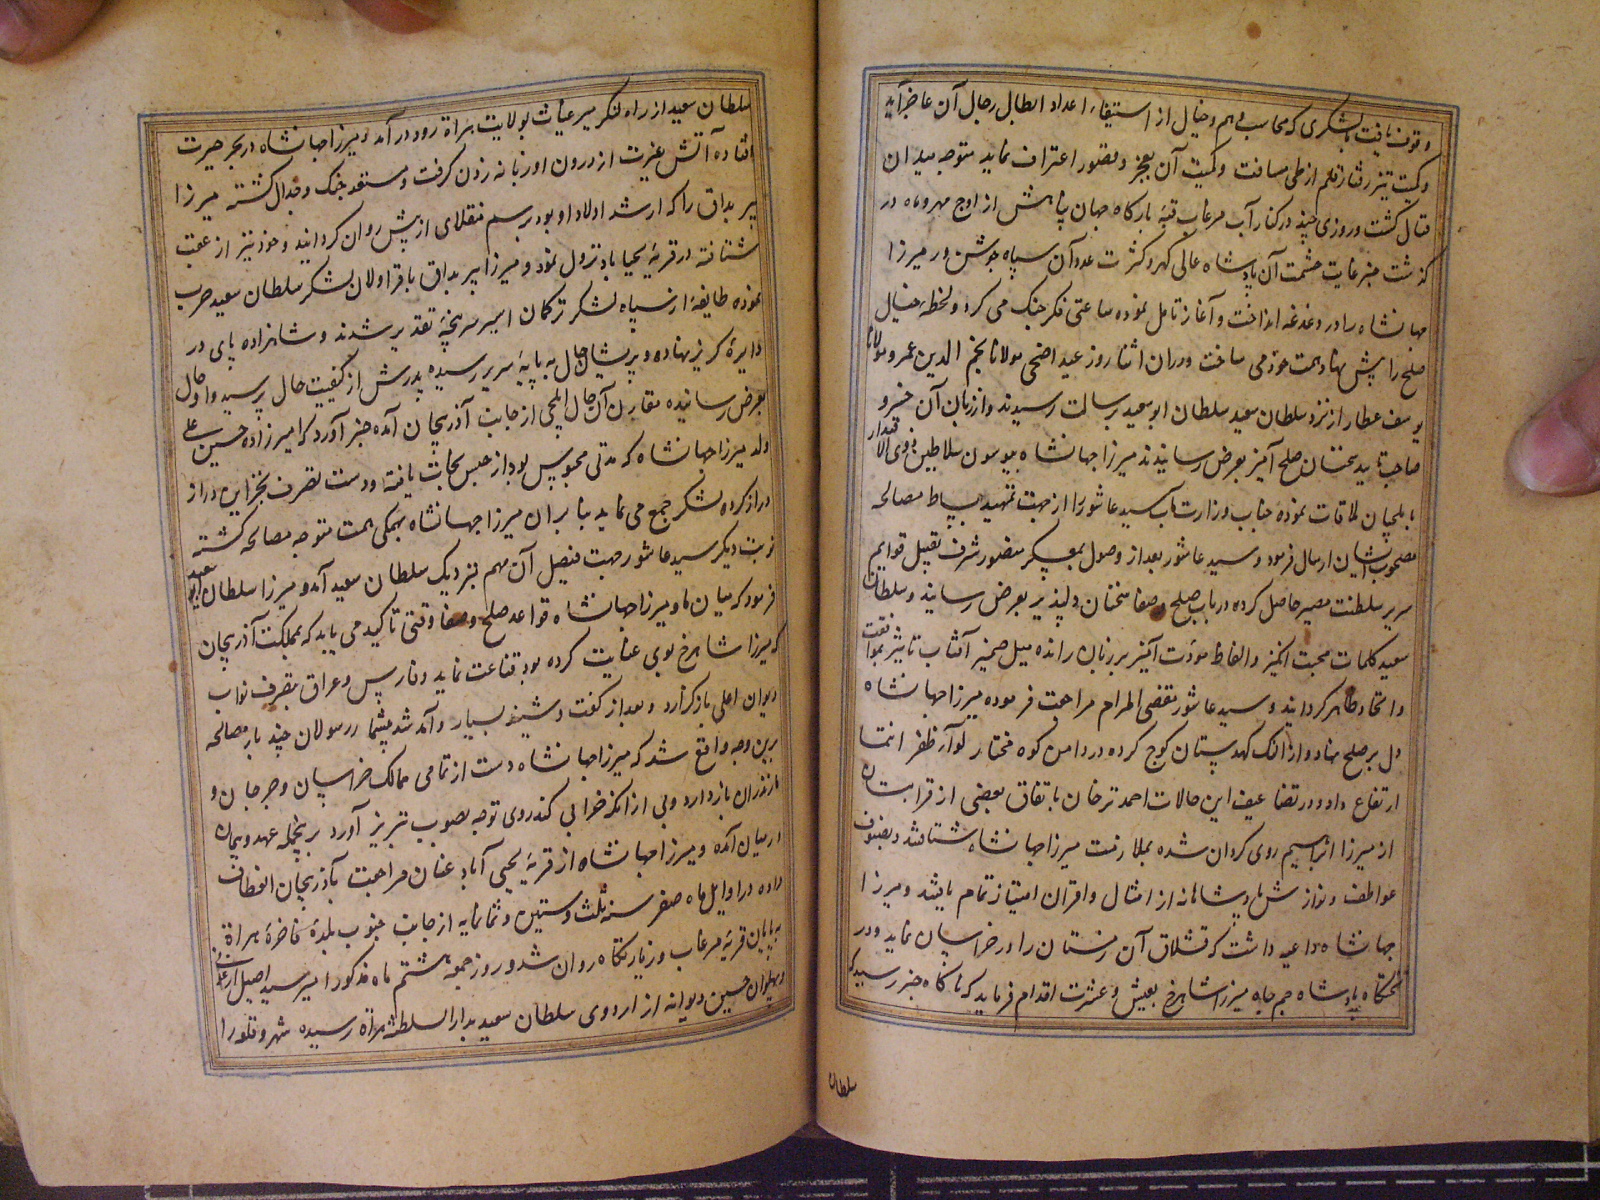 وقوف یافت با لشکری که محاسب وهم و خیال از استیفاء اعداد ابطال رجال آن عاجز آید
و کمیت تیز رفتار قلم از طی مسافت و کمیت آن بعجز و قصور اعتراف نماید متوجه میدان
قتال گشت و روزی چند در کنار آب مرغاب قبهٔ بارگاه جهان پناهش از اوج مهر و ماه در
گذشت خبر غایت حشمت آن پادشاه عالی گهر و کثرت عدد آن سپاه جوشن ور میرزا
جهانشاه را در دغدغه انداخت و آغاز تامل نموده ساعتی فکر جنک می کرد و لحظهٔ خیال
صلح را پیش نهاد همت خود می ساخت و در آن اثنا روز عید اضحی مولانا نجم الدین عمر و مولانا
یوسف عطار از نزد سلطان سعید سلطان ابو سعید برسالت رسیدند و از زبان آن خسرو
صاحب تایید سخنان صلح آمیز بعرض رسانیدند میرزا جهانشاه سلاطین ذوی الاقتدار
با ایلچیان ملاقات نموده جناب وزارت مآب سید عاشور را از جهت تمهید بساط مصالحه
مصحوب ایشان ارسال فرمود و سید عاشور بعد از وصول بمعسکر منصور شرف تقبیل قوایم
سریر سلطنت مصیر حاصل کرده در باب صلح و صفا سخنان دلپذیر بعرض رسانید و سلطان
سعید کلمات محبت انگیز و الفاظ مودت آمیز بر زبان رانده میل ضمیر آفتاب تاثیر بموافقت
و اتحاد ظاهر گردانید و سید عاشور مقضی المرام مراجعت فرموده میرزا جهانشاه
دل بر صلح نهاد و از النک کهدستان کوچ کرده در دامن کوه مختار لوآء ظفر انتما
ارتفاع داد و در تضاعیف این حالات احمد ترخان باتفاق بعضی از قرابتان
از میرزا ابراهیم روی گردان شده بملازمت میرزا جهانشاه شتافتند و بصنوف
عواطف و نوازش پادشاهانه از امثال و اقران امتیاز تمام یافتند و میرزا
جهانشاه داعیه داشت که قشلاق آن زمستان را در خراسان نماید و در
تختگاه پادشاه جم جاه میرزا شاهرخ بعیش و عشرت اقدام فرماید که ناگاه خبر رسید که
سلطان
سلطان سعید از راه لنکر میر غیاث بولایت هراة رود در آمد و میرزا جهانشاه در بحر حیرت
افتاده آتش غیرت از درون او زبانه زدن گرفت و مستعد جنک و جدال گشته میرزا
پیر بداق را که ارشد اولاد او بود برسم منقلای از پیش روان گردانید و خود نیز از عقب
شتافته در قریهٔ یحیاباد نزول نمود و میرزا پیر بداق با قراولان لشکر سلطان سعید حرب
نموده طایفهٔ از سپاه لشکر ترکمان اسیر سرپنجهٔ تقدیر شدند و شاهزاده پای در
دایرهٔ گریز نهاده و پریشان حال به پایهٔ سریر رسیده پدرش از کیفیت حال پرسید و احوال
بعرض رسانیده مقارن آن حال ایلچی از جانب آذربیجان آمده خبر آورد که امیرزاده حسین علی
ولد میرزا جهانشاه که مدتی محبوس بود از حبس نجات یافته و دست تصرف دراز
دراز کرده لشکر جمع می نماید بنا بر آن میرزا جهانشاه بهمگی همت متوجه مصالحه گشته
نوبت دیگر سید عاشور جهت فیصل آن مهم بنزدیک سلطان سعید آمد و میرزا سلطان ابو سعید
فرمود که میان ما و میرزا جهانشاه قواعد صلح و صفا وقتی تاکید می یابد که بمملکت آذربیجان
که میرزا شاهرخ بوی عنایت کرده بود قناعت نماید و فارس و عراق بتصرف نواب
دیوان اعلی باز گذارد و بعد از گفت و شنید بسیار و آمد شد بیشمار رسولان چند بار مصالحه
برین وجه واقع شد که میرزا جهانشاه دست از تمامی ممالک خراسان و جرجان و
مازندران باز دارد و بی از انکه خرابی کند روی توجه بصوب تبریز آورد برینجمله عهد و پیمان
در میان آمده و میرزا جهانشاه از قریهٔ یحیی آباد عنان مراجعت بآذربیجان انعطاف
داده در اوایل ماه صفر سنه ثلث و ستین و ثمانمایه از جانب جنوب بلدهٔ فاخرهٔ هراة
به پایان قریهٔ مرغاب و زیارتگاه روان شد و روز جمعه هشتم ماه مذکور امیر سید اصیل ارغون
و پهلوان حسین دیوانه از اردوی سلطان سعید بدار السلطنه هراة رسیده شهر و قلعه را